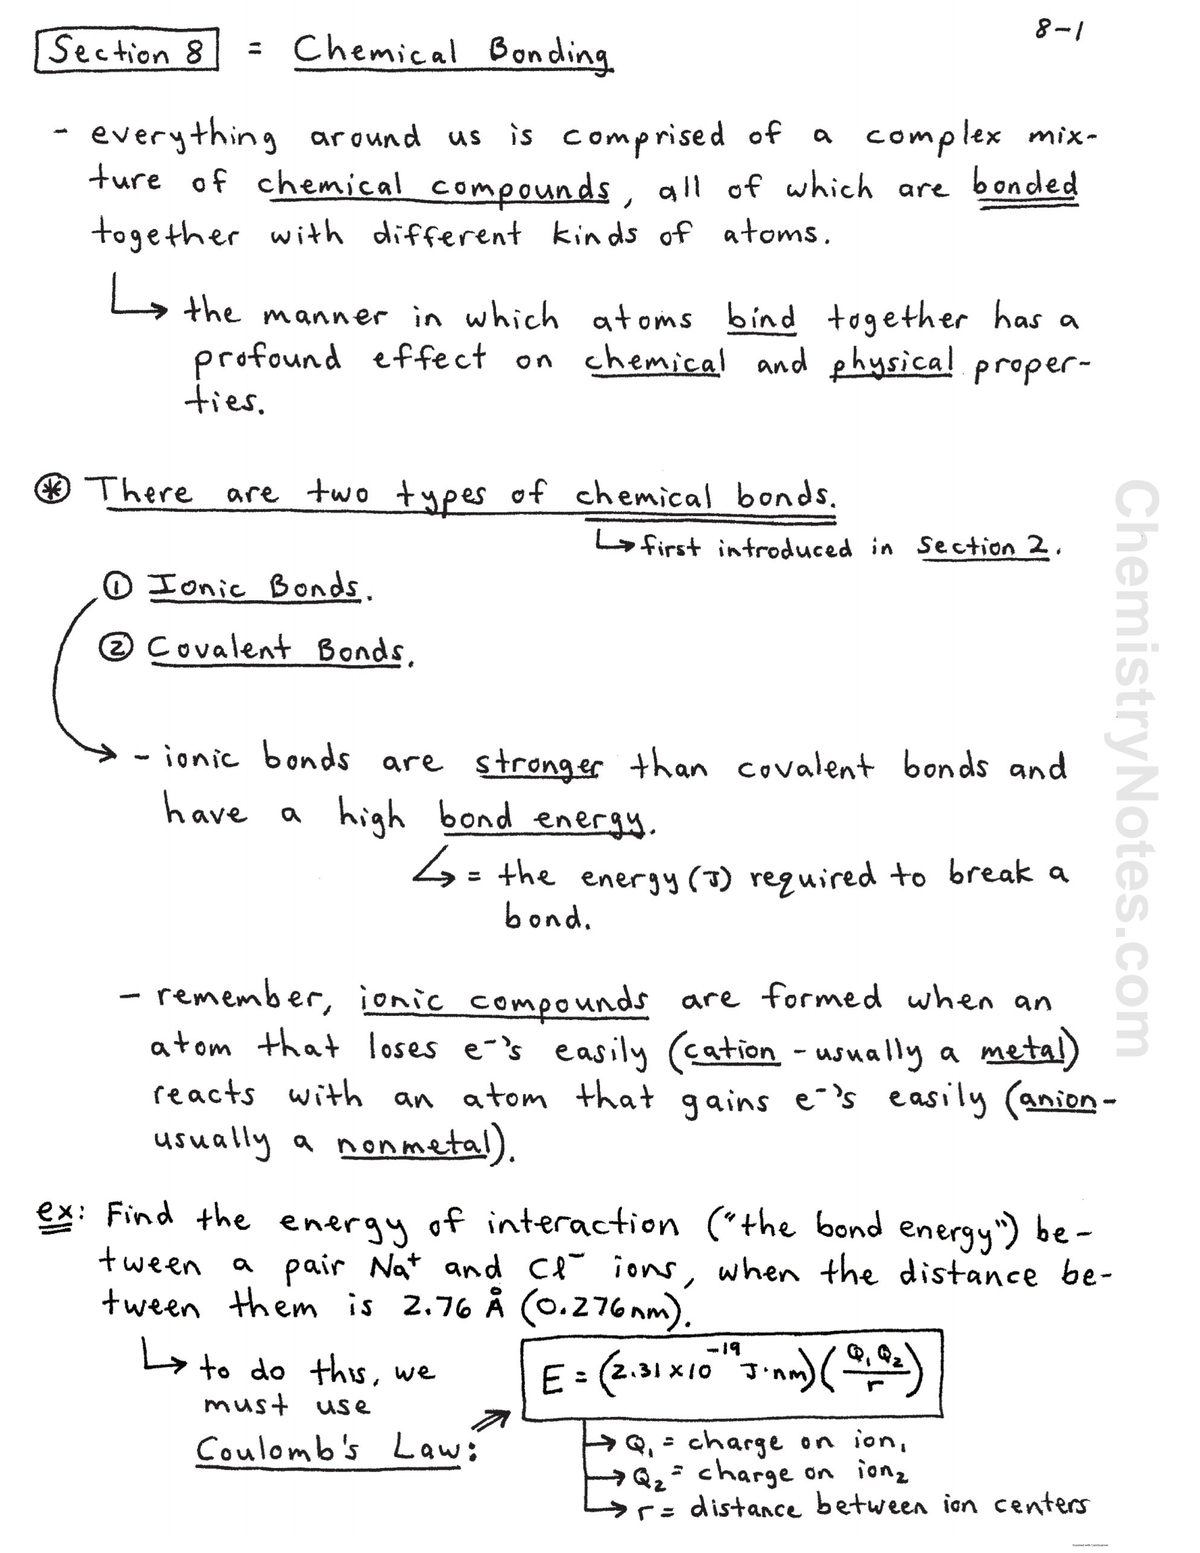 8-1
Section 8 = Chemical Bonding
- everything around us is comprised of a complex mix-
ture of chemical compounds, all of which are bonded
together with different kinds of atoms.
↳ the manner in which atoms bind together has a
profound effect on chemical and physical proper-
ties.
⊛ There are two types of chemical bonds.
↳ first introduced in Section 2.
① Ionic Bonds.
② Covalent Bonds.
→ - ionic bonds are stronger than covalent bonds and
have a high bond energy.
↳ = the energy (J) required to break a
bond.
- remember, ionic compounds are formed when an
atom that loses e⁻'s easily (cation - usually a metal)
reacts with an atom that gains e⁻'s easily (anion-
usually a nonmetal).
ex: Find the energy of interaction ("the bond energy") be-
tween a pair Na⁺ and Cl⁻ ions, when the distance be-
tween them is 2.76 Å (0.276 nm).
↳ to do this, we
must use
Coulomb's Law: ⇒
E = (2.31 x 10⁻¹⁹ J·nm)(Q₁Q₂/r)
→ Q₁ = charge on ion₁
→ Q₂ = charge on ion₂
→ r = distance between ion centers
ChemistryNotes.com